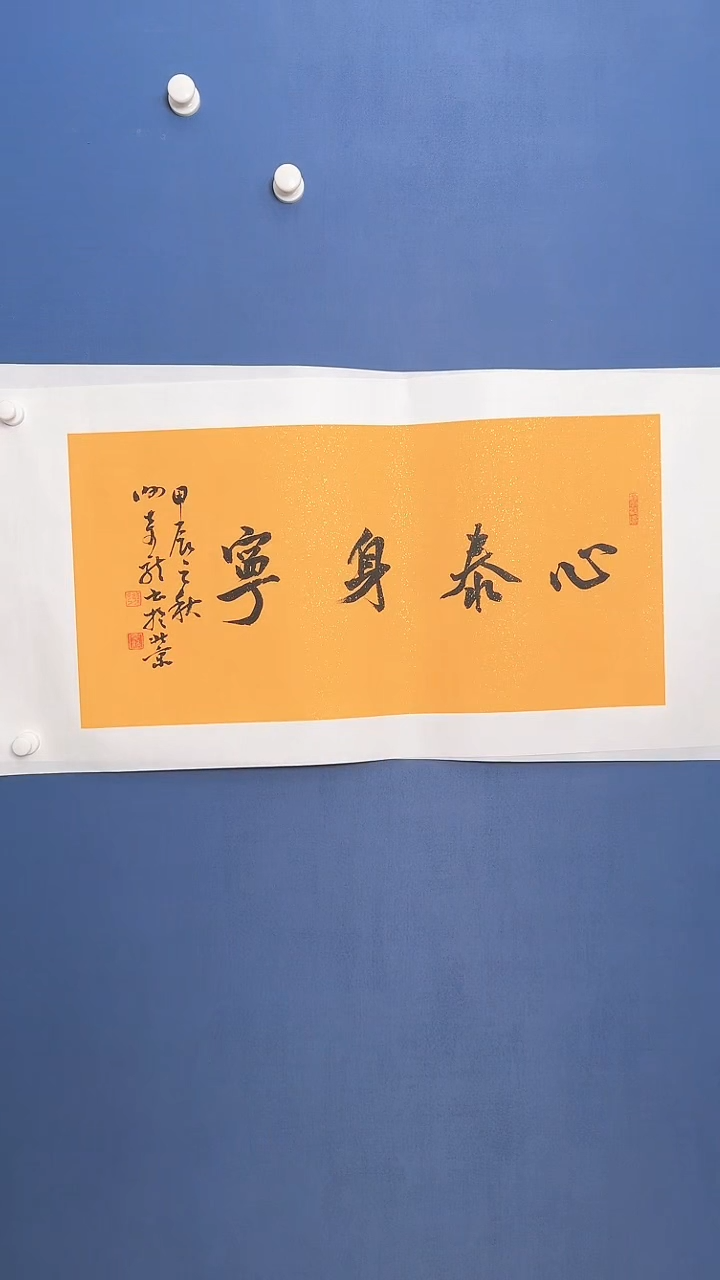 心泰身寧
甲辰之秋
書於北京